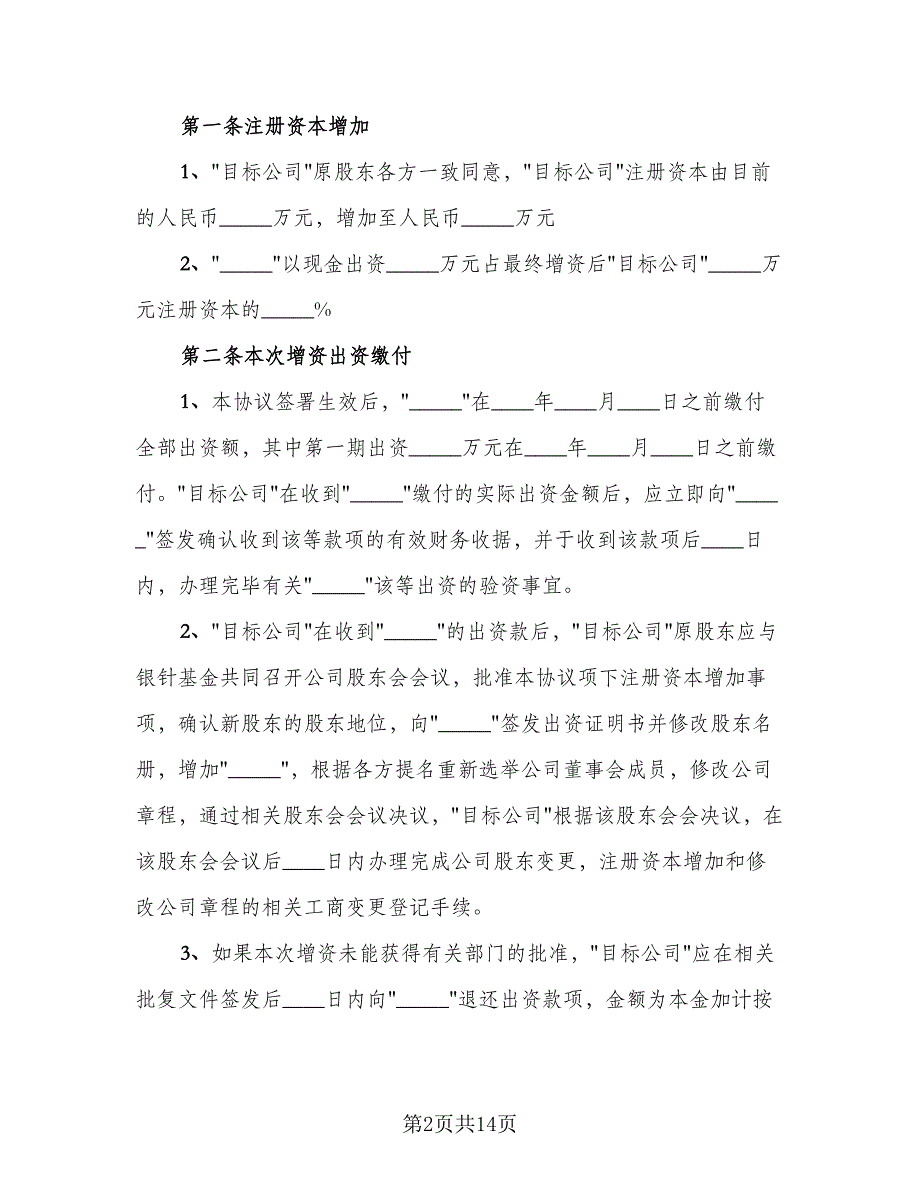 第一条注册资本增加
1、"目标公司"原股东各方一致同意，"目标公司"注册资本由目前
的人民币_____万元，增加至人民币_____万元
2、"_____"以现金出资_____万元占最终增资后"目标公司"_____万
元注册资本的_____%
第二条本次增资出资缴付
1、本协议签署生效后，"_____"在____年____月____日之前缴付
全部出资额，其中第一期出资_____万元在____年____月____日之前缴
付。"目标公司"在收到"_____"缴付的实际出资金额后，应立即向"____
_"签发确认收到该等款项的有效财务收据，并于收到该款项后____日
内，办理完毕有关"_____"该等出资的验资事宜。
2、"目标公司"在收到"_____"的出资款后，"目标公司"原股东应与
银针基金共同召开公司股东会会议，批准本协议项下注册资本增加事
项，确认新股东的股东地位，向"_____"签发出资证明书并修改股东名
册，增加"_____"，根据各方提名重新选举公司董事会成员，修改公司
章程，通过相关股东会会议决议，"目标公司"根据该股东会会决议，在
该股东会会议后____日内办理完成公司股东变更，注册资本增加和修
改公司章程的相关工商变更登记手续。
3、如果本次增资未能获得有关部门的批准，"目标公司"应在相关
批复文件签发后____日内向"_____"退还出资款项，金额为本金加计按
第2页共14页